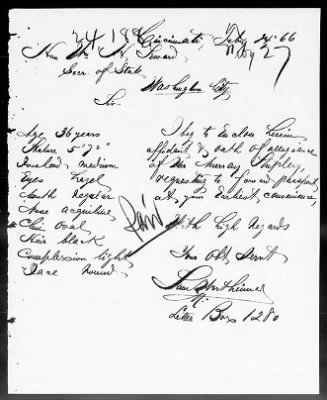 Cincinnati, Feby 24" 66
Hon Wm H Seward
Secr. of State
Washington City
Sir
I beg to Enclose herein
affidavit & oath of allegiance
of Mr Murray Shipley,
requesting to forward passport,
at your Earliest convenience,
With high regards
Your Obdt Servt
Sam Wertheimer
Letter Box 1280
Age 36 years
Stature 5' 7½"
Forehead medium
Eyes hazel
Mouth regular
Nose acquiline
Chin oval
Hair black
Complexion light
Face round
Paid